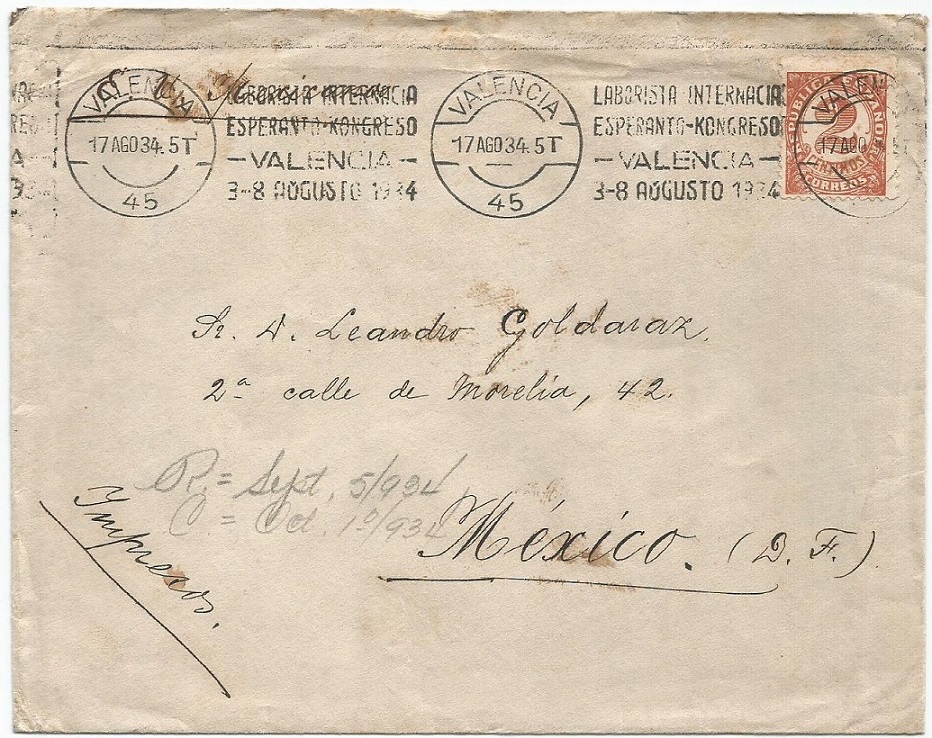 VALENCIA
17 AGO 34. 5T
45
LABORISTA INTERNACIA
ESPERANTO-KONGRESO
— VALENCIA —
3-8 AŬGUSTO 1934
VALENCIA
17 AGO 34. 5T
45
LABORISTA INTERNACIA
ESPERANTO-KONGRESO
— VALENCIA —
3-8 AŬGUSTO 1934
REPUBLICA ESPAÑOLA
2
CENTIMOS
CORREOS
VALEN
17 AGO
Sr. D. Leandro Goldaraz.
2ª calle de Morelia, 42.
R. = Sept. 5/934.
C = Oct. 1º/934
México. (D. F.)
Impresos.